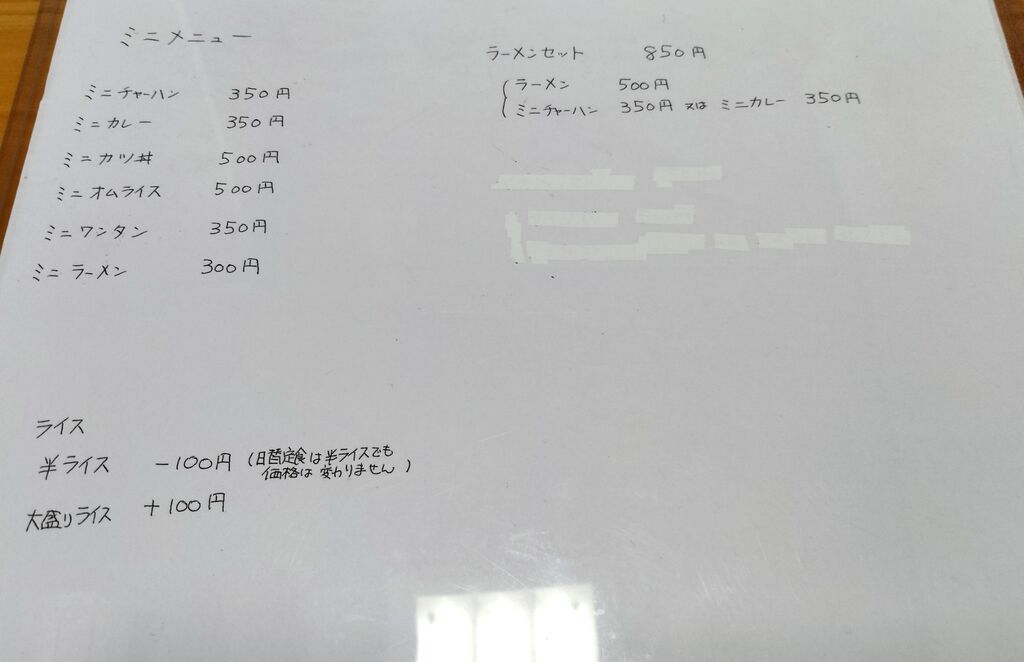 ミニメニュー
ミニチャーハン 350円
ミニカレー 350円
ミニカツ丼 500円
ミニオムライス 500円
ミニワンタン 350円
ミニラーメン 300円
ラーメンセット 850円
ラーメン 500円
ミニチャーハン 350円 又は ミニカレー 350円
ライス
半ライス -100円 (日替定食は半ライスでも
価格は変わりません)
大盛りライス +100円